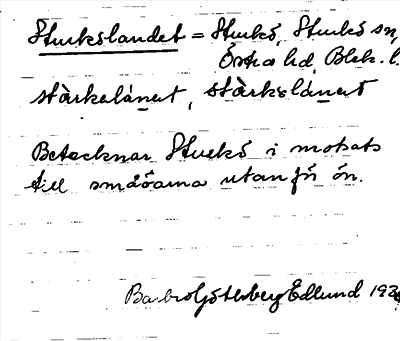 Sturkslandet = Sturkö, Sturkö sn,
Östra hd, Blek. l.
stàrkslánet, stàrkslánet
Betecknar Sturkö i motsats
till småöarna utanför ön.
Barbro Göterberg Edlund